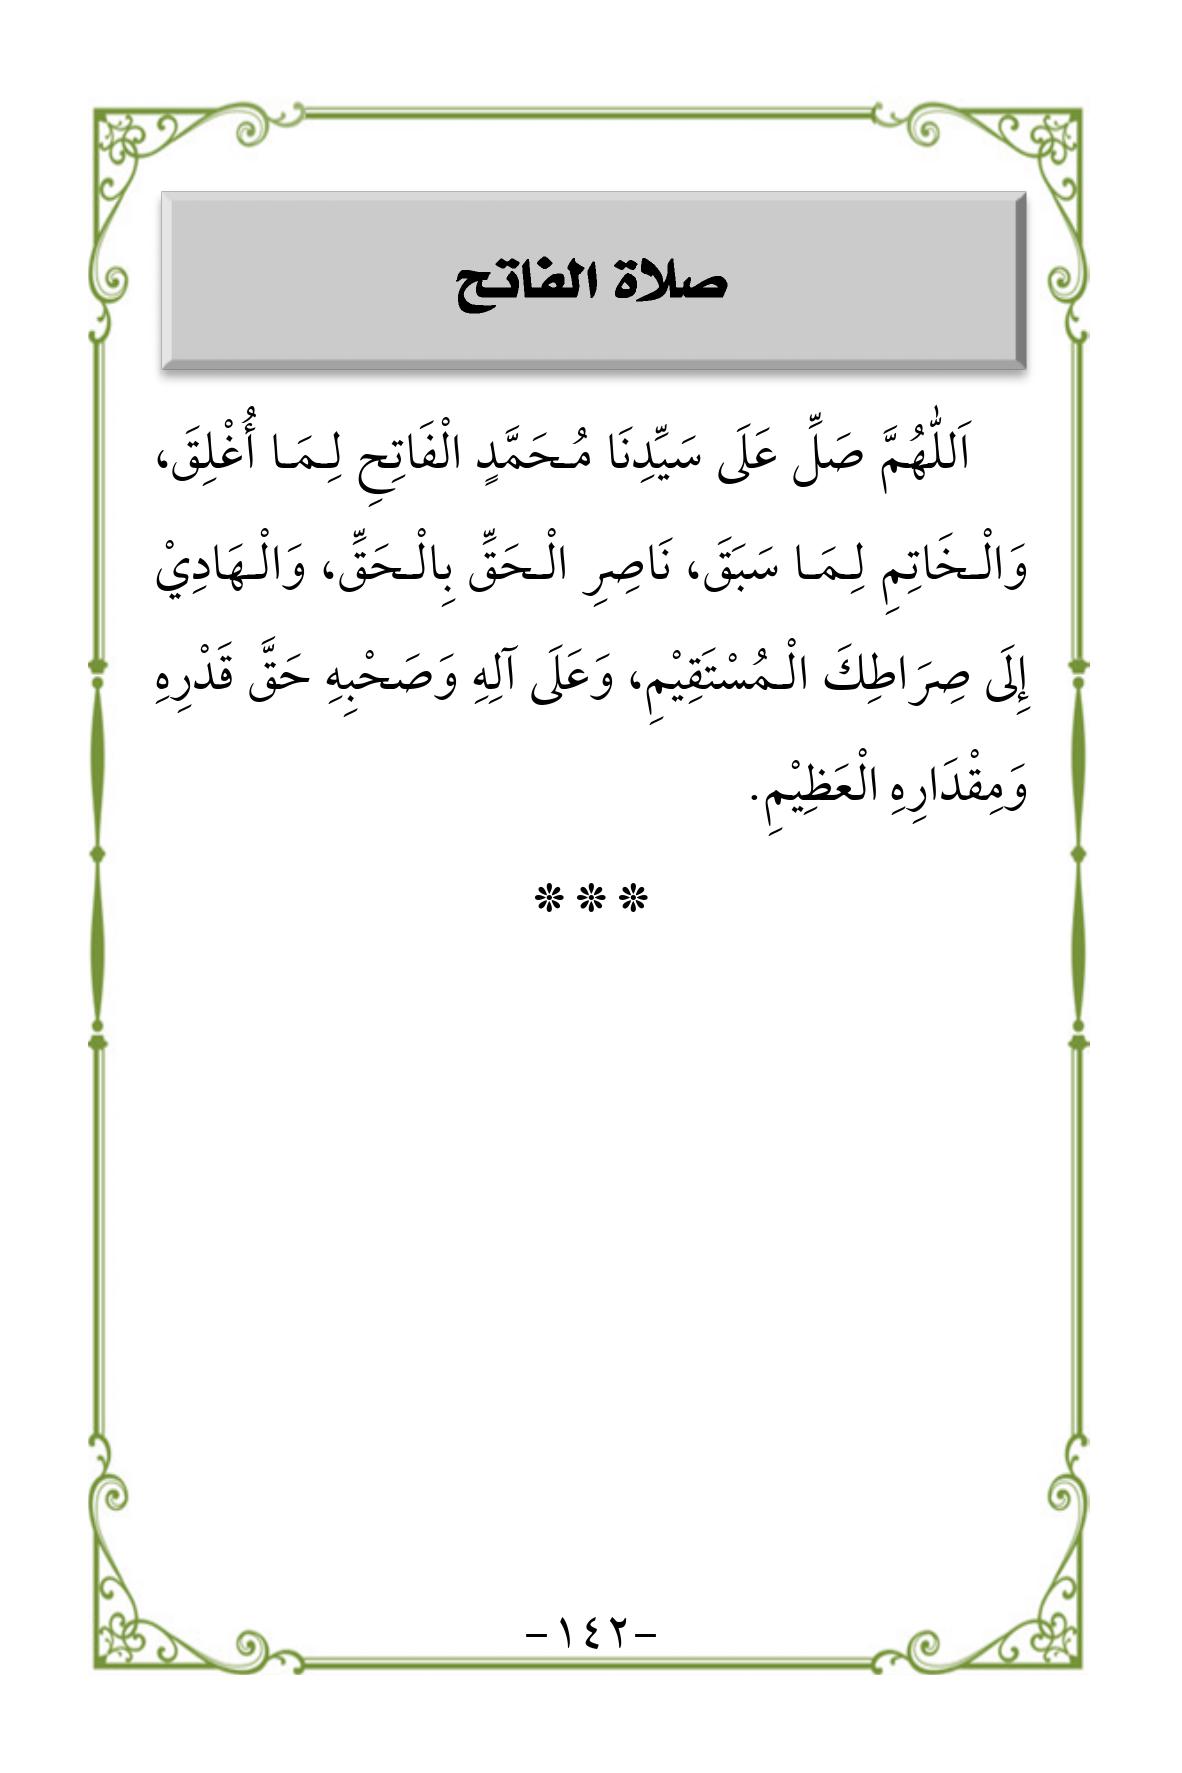 صلاة الفاتح
اَللّٰهُمَّ صَلِّ عَلَى سَيِّدِنَا مُـحَمَّدٍ الْفَاتِحِ لِـمَـا أُغْلِقَ،
وَالْـخَاتِمِ لِـمَـا سَبَقَ، نَاصِرِ الْـحَقِّ بِالْـحَقِّ، وَالْـهَادِيْ
إِلَى صِرَاطِكَ الْـمُسْتَقِيْمِ، وَعَلَى آلِهِ وَصَحْبِهِ حَقَّ قَدْرِهِ
وَمِقْدَارِهِ الْعَظِيْمِ.
❊ ❊ ❊
-١٤٢-